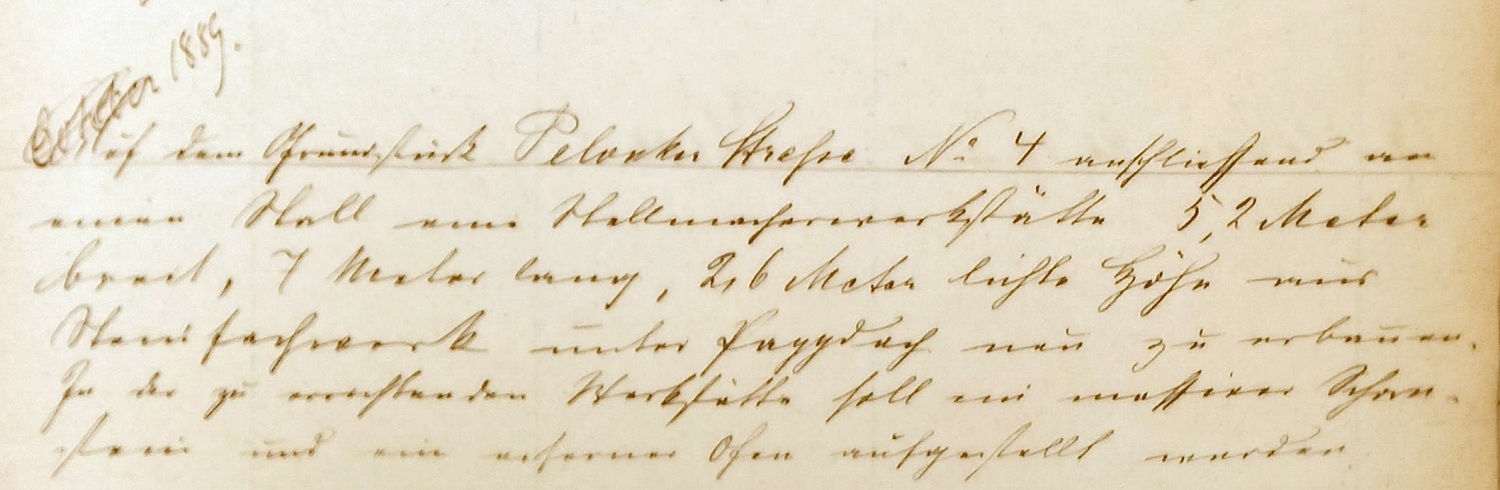 October 1889.
auf dem Grundstück Pelonker Strasse No 4 anschliessend an
einen Stall eine Stellmacherwerkstätte 5,2 Meter
breit, 7 Meter lang, 2,6 Meter lichte Höhe aus
Steinfachwerk unter Pappdach neu zu erbauen.
In der zu errichtenden Werkstätte soll ein massiver Schorn-
stein und ein eiserner Ofen aufgestellt werden